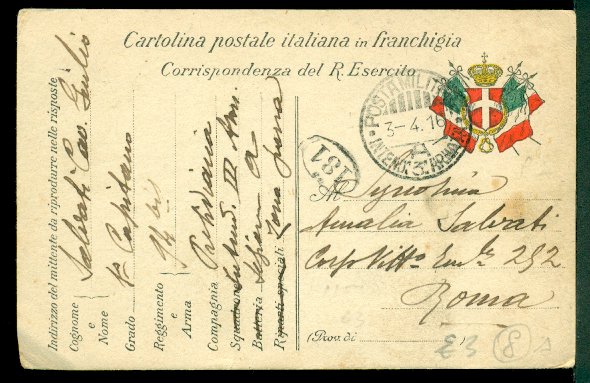 Cartolina postale italiana in franchigia
Corrispondenza del R. Esercito
POSTA MILITARE
3-4.16
INTEND. 3ª ARMATA
181
Indirizzo del mittente da riprodurre nelle risposte
Cognome e Nome Salvati Cav. Giulio
Grado 1° Capitano
Reggimento e Arma di
Compagnia Presidiaria
Squadrone Intend. III Arm.
Batteria A
Riparti speciali Zona Guerra
A Signorina
Amalia Salvati
Corso Vitto Em.le 252
Roma
(Prov. di
£3 8 A